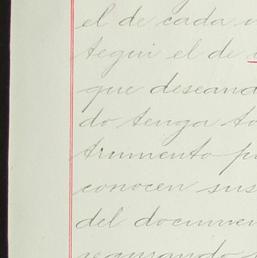 el de cada
tegui el de
que deseand
do tenga to
trumento p
conocen sus
del documen